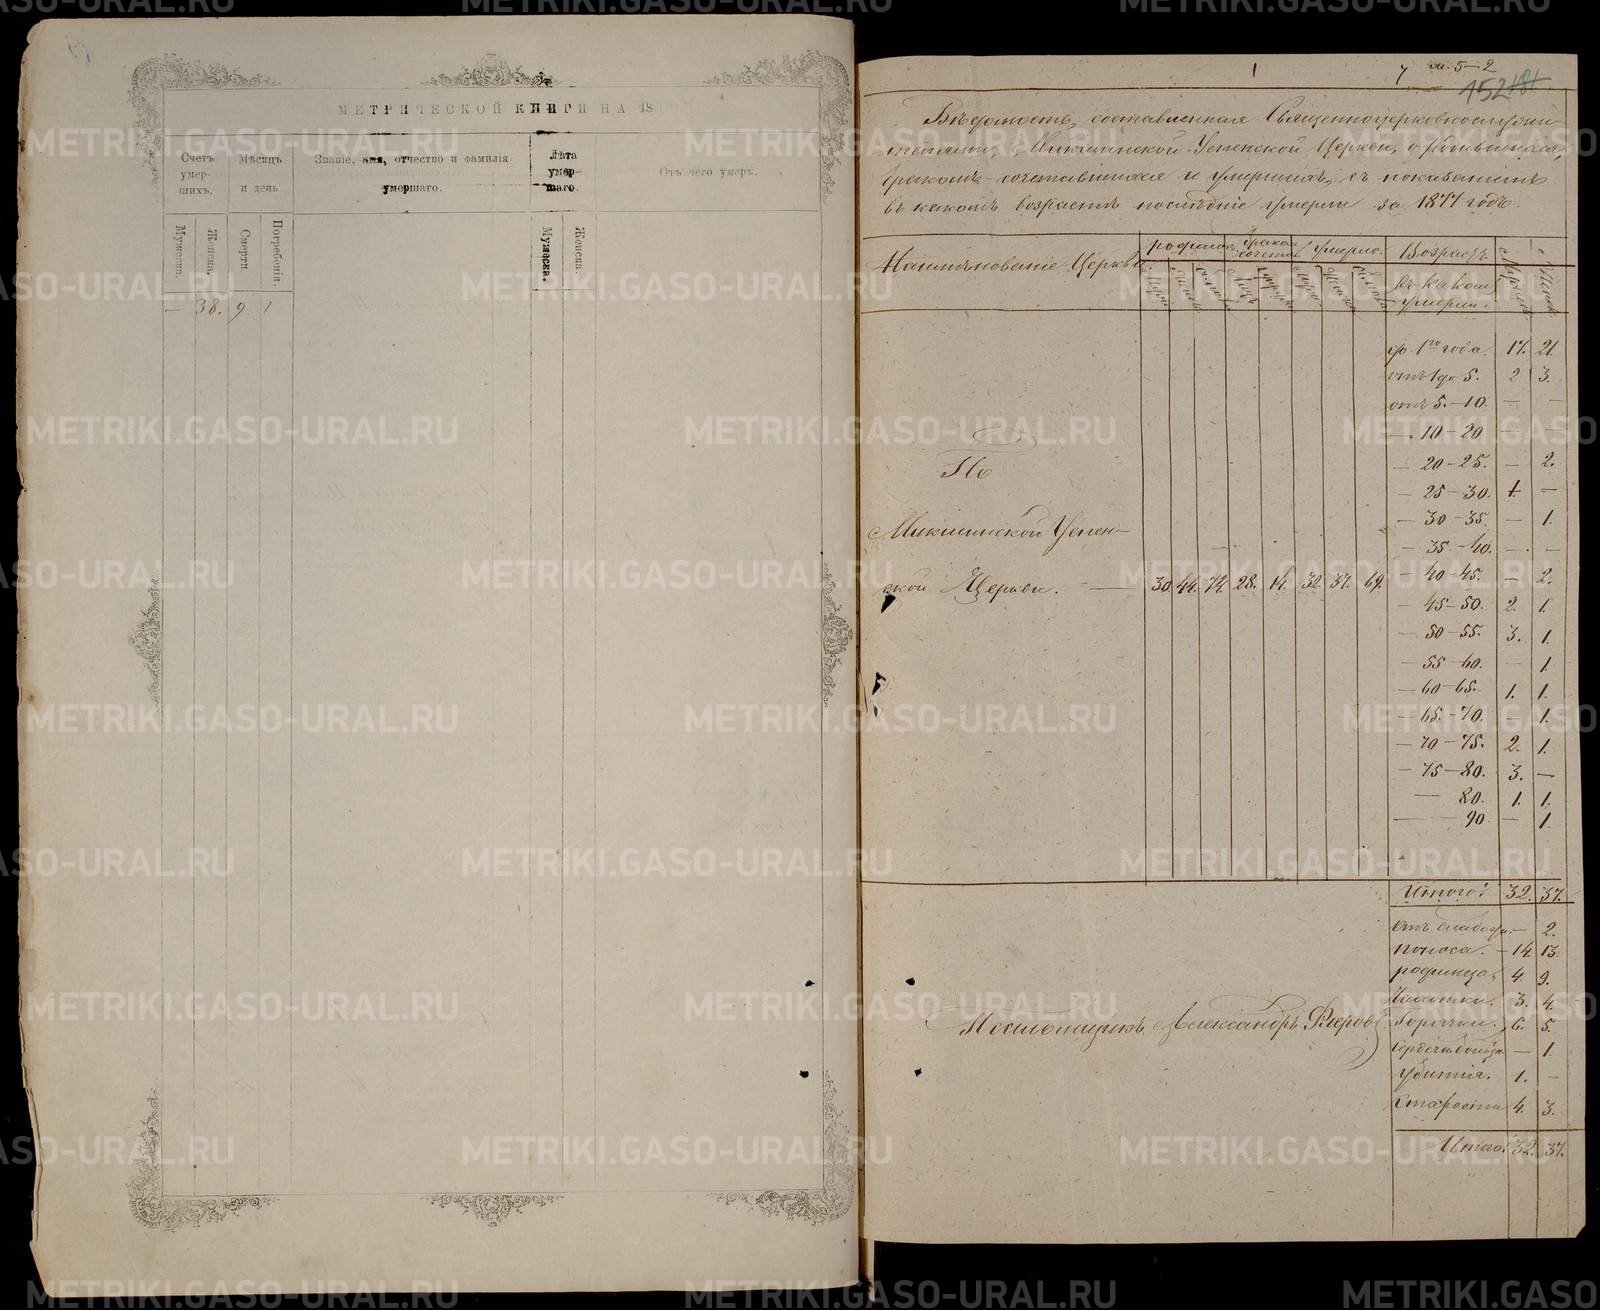 МЕТРИЧЕСКОЙ КНИГИ НА 18
Счетъ умер- шихъ.
Мѣсяцъ и день
Званіе, имя, отчество и фамилія умершаго.
Лѣта умер- шаго.
Отъ чего умеръ.
Мужеска.
Женска.
Смерти.
Погребенія.
Мужеска.
Женска.
— 38. 9 1
1
7
м. 5-2
152
Вѣдомость, составленная Священноцерковнослужи-
телями, Микшинской Успенской Церкви, о родившихся,
бракомъ сочетавшихся и умершихъ, съ показаніемъ
въ какомъ возрастѣ послѣдніе умерли за 1877 годъ.
Наименованіе Церкви
умерло.
Возрастъ
въ каком
умерли.
до 1го года. 17. 21.
отъ 1 до 5. 2 3.
отъ 5.-10. — —
— 10-20 — —
— 20-25. — 2.
— 25-30. 1. —
— 30-35. — 1.
— 35-40. — —
— 40-45. — 2.
— 45-50. 2. 1.
— 50-55. 3. 1.
— 55-60. — 1.
— 60-65. 1. 1.
— 65-70. — 1.
— 70-75. 2. 1.
— 75-80. 3. —
— 80. 1. 1.
— 90. — 1.
По
Микшинской Успен-
ской Церкви. — 30. 44. 74. 28. 14. 32. 37. 69.
Итого: 32. 37.
— 2.
поноса. — 14. 13.
родимца. 4. 9.
3. 4.
Горячки. 6. 5.
— 1.
убитія. 1. —
Старости 4. 3.
Итого. 32. 37.
Псаломщикъ Александръ Флеровъ
METRIKI.GASO-URAL.RU